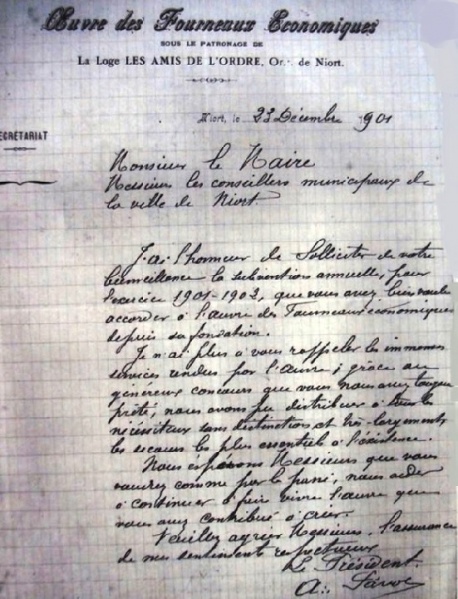 Œuvre des Fourneaux Economiques
SOUS LE PATRONAGE DE
La Loge LES AMIS DE L'ORDRE, Or∴ de Niort.
Niort, le 23 Décembre 1901
SECRÉTARIAT
Monsieur le Maire
Messieurs les conseillers municipaux de
la ville de Niort.
J'ai l'honneur de Solliciter de votre
bienveillance la subvention annuelle, pour
l'exercice 1901-1903, que vous avez bien voulu
accorder à l'œuvre des Fourneaux économiques
depuis sa fondation.
Je n'ai plus à vous rappeler les immenses
services rendus par l'œuvre ; grâce au
généreux concours que vous nous avez toujours
prêté, nous avons pu distribuer à tous les
nécessiteux sans distinction, et très largement
les secours les plus essentiels à l'existence.
Nous espérons Messieurs que vous
voudrez comme par le passé, nous aider
à continuer à faire vivre l'œuvre que
vous avez contribué à créer.
Veuillez agréer Messieurs, l'assurance
de mes sentiments respectueux
Le Président.
A.